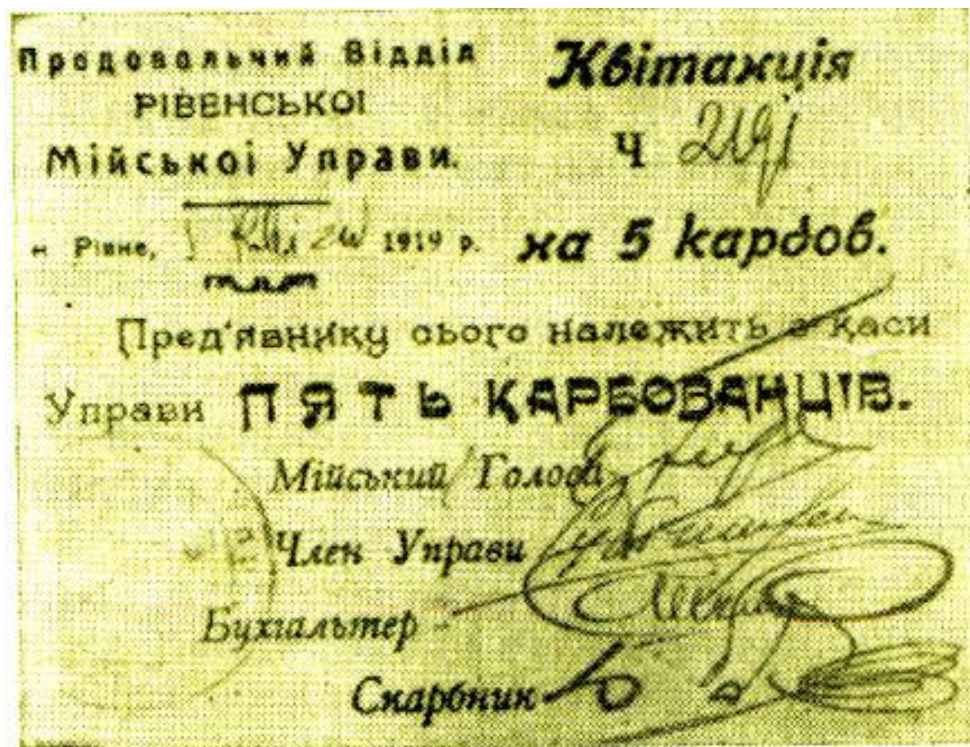 Продовольчий Відділ
РІВЕНСЬКОІ
Мійськоі Управи.
Квітанція
Ч
м Рівне, 1919 р.
на 5 кардов.
Пред'явнику сього належить з каси
Управи ПЯТЬ КАРБОВАНЦІВ.
Мійський Голова
Член Управи
Бухгальтер
Скарбник